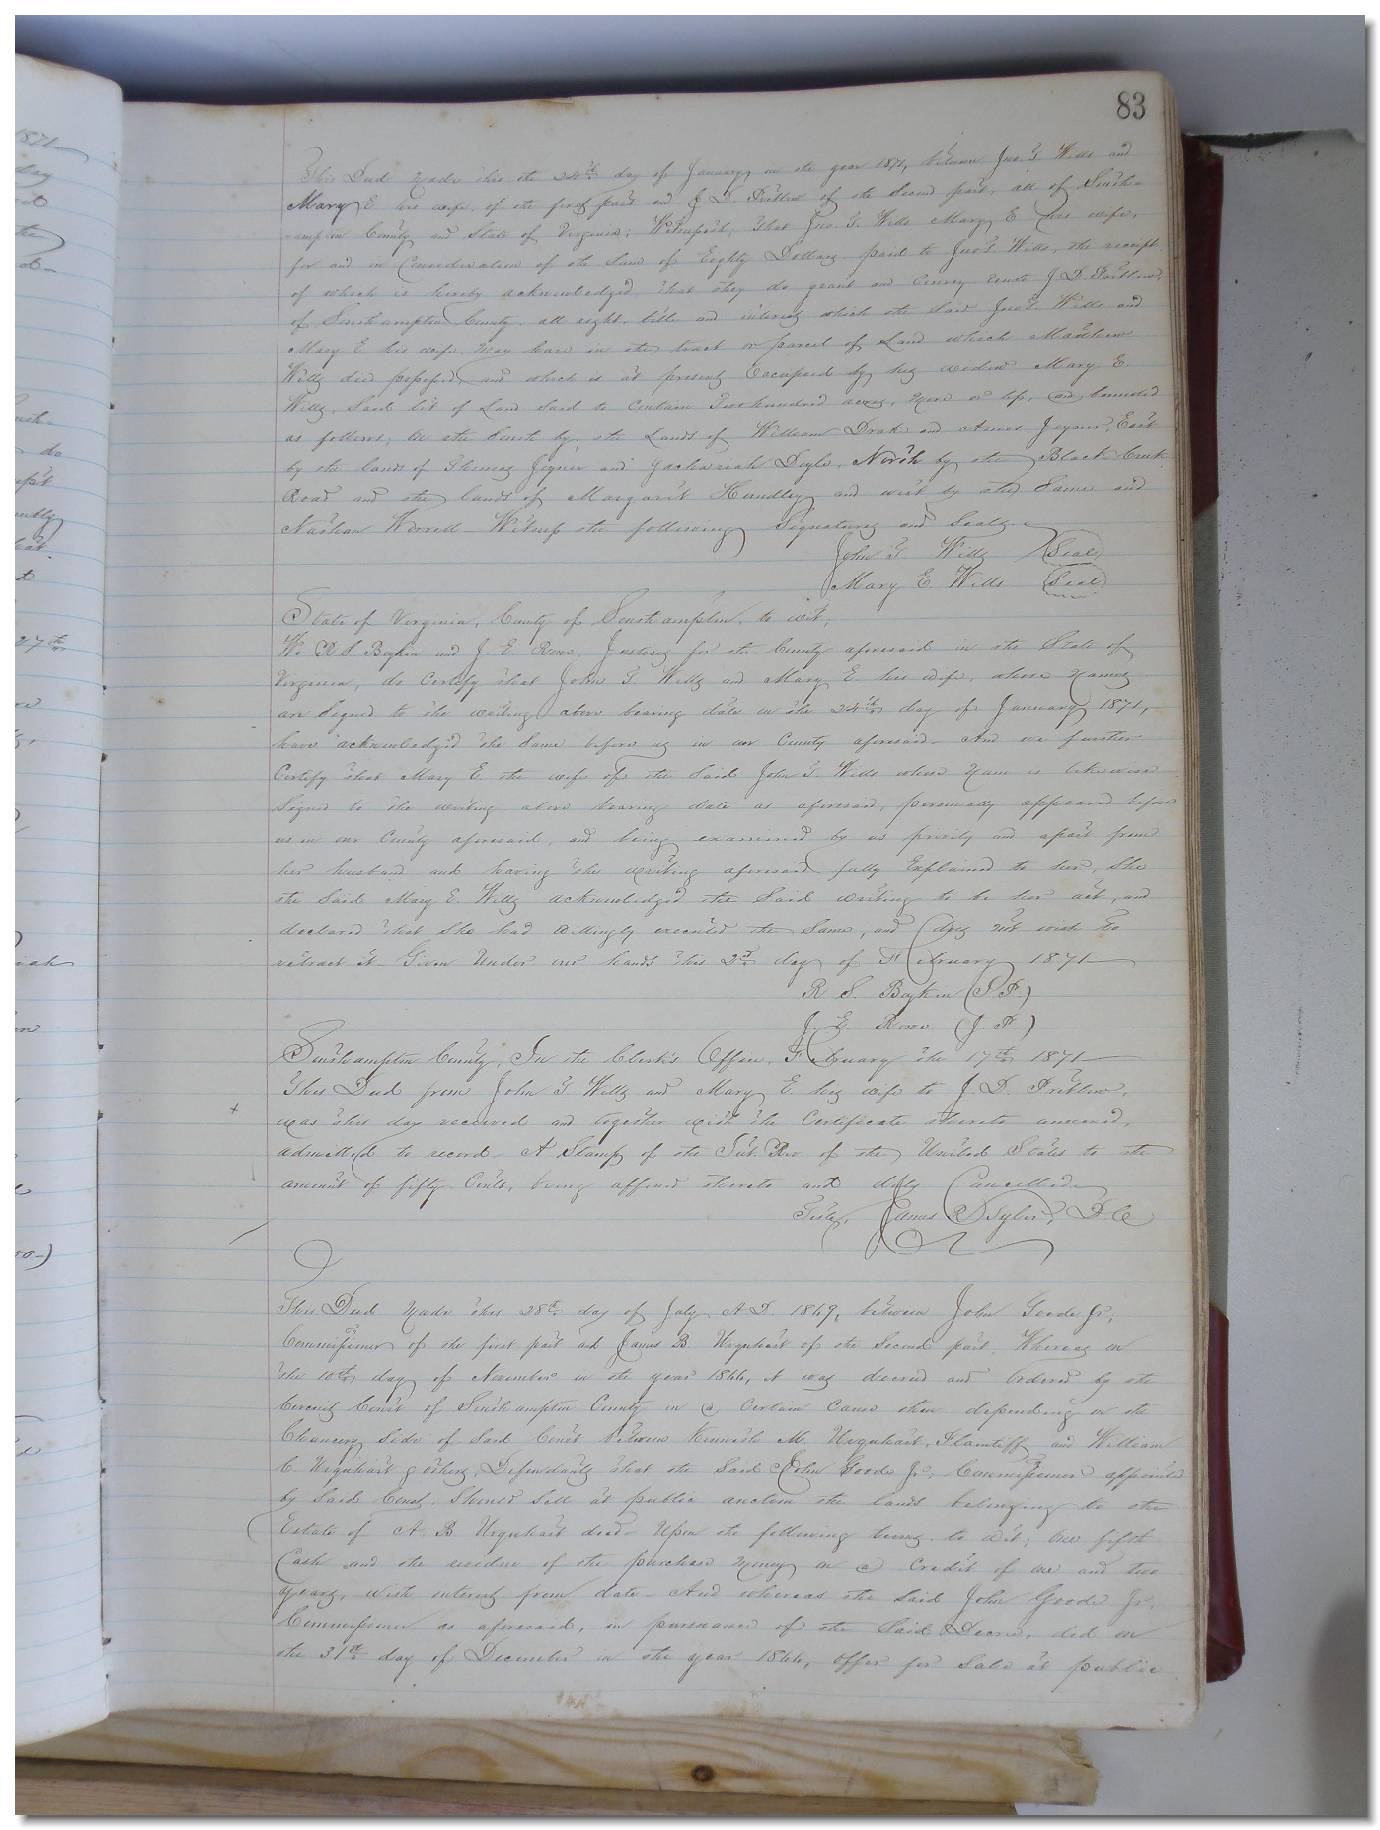 83
This Deed made this the 24th day of January, in the year 1871, between Jno. T. Wills and
Mary E his wife, of the first part and J D Pretlow of the Second part, all of South-
ampton County and State of Virginia; Witnesseth, That Jno. T. Wills Mary E his wife,
for and in Consideration of the Sum of Eighty Dollars paid to Jno T Wills, the receipt
of which is hereby acknowledged that they do grant and convey unto J. D. Pretlow,
of Southampton County, all right, title and interest which the Said Jno T. Wills and
Mary E his wife may have in the tract or parcel of Land which
Wills died possessed, and which is at present Occupied by his widow Mary E.
Wills, Said lot of Land Said to Contain Two hundred acres, more or less, and bounded
as follows, On the South by the Lands of William Drake and Joyner, East
by the lands of Thomas Joyner and Zachariah Doyle, North by the Black Creek
Road and the lands of Margaret Hundley and west by the Same and
Nathan Worrell - Witness the following Signatures and Seals.
John T Wills (Seal)
Mary E. Wills (Seal)
State of Virginia, County of Southampton, to wit;
We R S Boykin and J. E Rowe, Justices for the County aforesaid in the State of
Virginia, do Certify that John T. Wills and Mary E his wife, whose names
are Signed to the writing above bearing date on the 24th day of January 1871,
have acknowledged the Same before us in our County aforesaid - And we further
Certify that Mary E. the wife of the Said John T Wills whose name is likewise
Signed to the writing above bearing date as aforesaid, personally appeared before
us in our County aforesaid, and being examined by us privily and apart from
her husband and having the writing aforesaid fully Explained to her, She
the Said Mary E. Wills acknowledged the Said writing to be her act, and
declared that She had willingly executed the Same, and does not wish to
retract it - Given Under our hands this 2d day of February 1871
R S. Boykin (J. P.)
J. E. Rowe (J. P.)
Southampton County, In the Clerk's Office, February the 17th 1871
This Deed from John T Wills and Mary E. his wife to J. D. Pretlow,
was this day received and together with the Certificate thereto annexed,
admitted to record - A Stamp of the Int. Rev. of the United States to the
amount of fifty Cents, being affixed thereto and duly Cancelled
Teste, James Tyler, D. C
This Deed made this 28th day of July A. D. 1869, between John Goode Jr,
Commissioner of the first part and James B Urquhart of the Second part. Whereas on
the 10th day of November in the year 1866, it was decreed and Ordered by the
Circuit Court of Southampton County in a Certain Cause then depending on the
Chancery Side of Said Court between Kenneth M. Urquhart, Plaintiff and William
C. Urquhart & others, Defendants that the Said John Goode Jr, Commissioner appointed
by Said Court, Should Sell at public auction the lands belonging to the
Estate of A. B Urquhart decd Upon the following terms to wit; One fifth
Cash and the residue of the purchase money on a Credit of one and two
years, with interest from date - And whereas the Said John Goode Jr,
Commissioner as aforesaid, in pursuance of the Said Decree, did on
the 31st day of December in the year 1866, offer for Sale at public